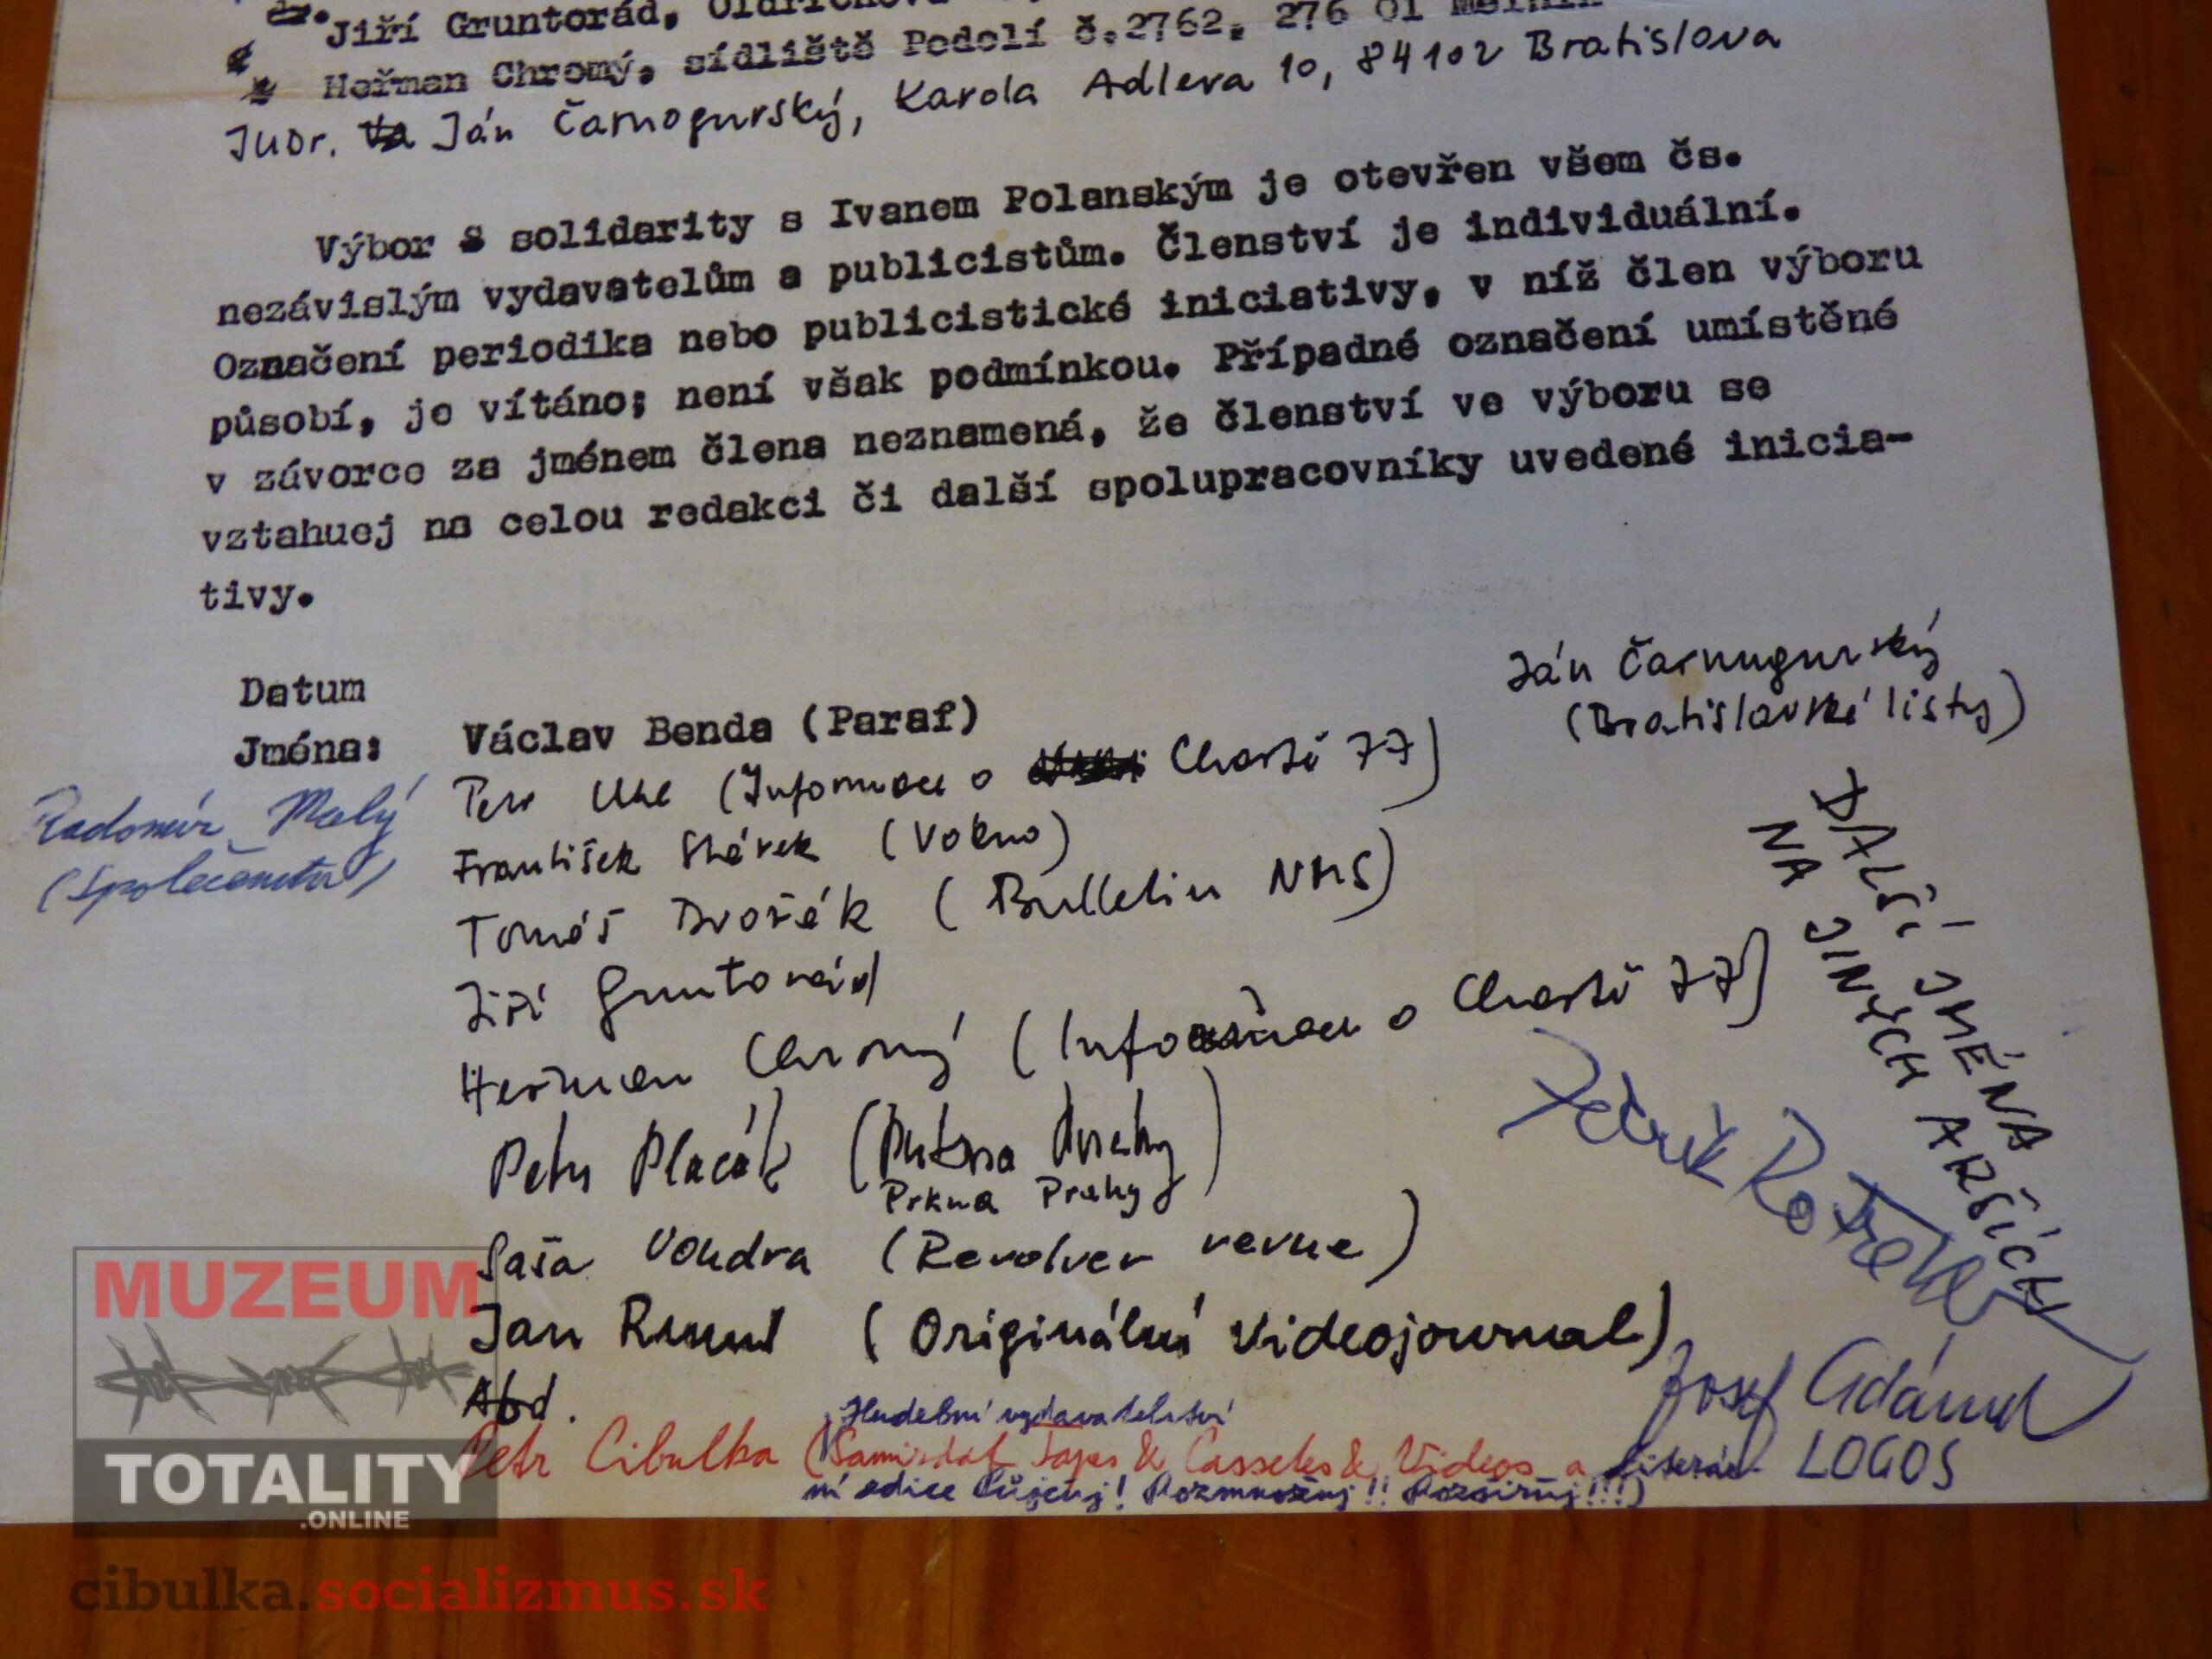 Jiří Gruntorád,
Heřman Chromý, sídliště Podolí č.2762, 276 01 Mělník
JUDr. Va Ján Čarnogurský, Karola Adlera 10, 84102 Bratislava
Výbor S solidarity s Ivanem Polanským je otevřen všem čs.
nezávislým vydavatelům a publicistům. Členství je individuální.
Označení periodika nebo publicistické iniciativy, v níž člen výboru
působí, je vítáno; není však podmínkou. Případné označení umístěné
v závorce za jménem člena neznamená, že členství ve výboru se
vztahuej na celou redakci či další spolupracovníky uvedené inicia-
tivy.
Datum
Jména:
Václav Benda (Paraf)
Ján Čarnogurský
(Bratislavské listy)
Petr Uhl (Informace o Chartě 77)
Radomír Malý
(Společenství)
František Stárek (Vokno)
Tomáš Dvořák (Bulletin NMS)
Jiří Gruntorád
Heřman Chromý (Informace o Chartě 77)
Petr Placák
Prkna Prahy
Saša Vondra (Revolver revue)
Jan Ruml (Originální Videojournal)
Atd.
Hudební vydavatelství
Petr Cibulka (Samizdat Tapes & Cassetes & Videos a Literár-
ní edice Půjčuj! Rozmnožuj!! Rozšiřuj!!!)
DALŠÍ JMÉNA
NA JINÝCH ARŠÍCH
Josef Adámek
LOGOS
MUZEUM
TOTALITY
.ONLINE
cibulka.socializmus.sk